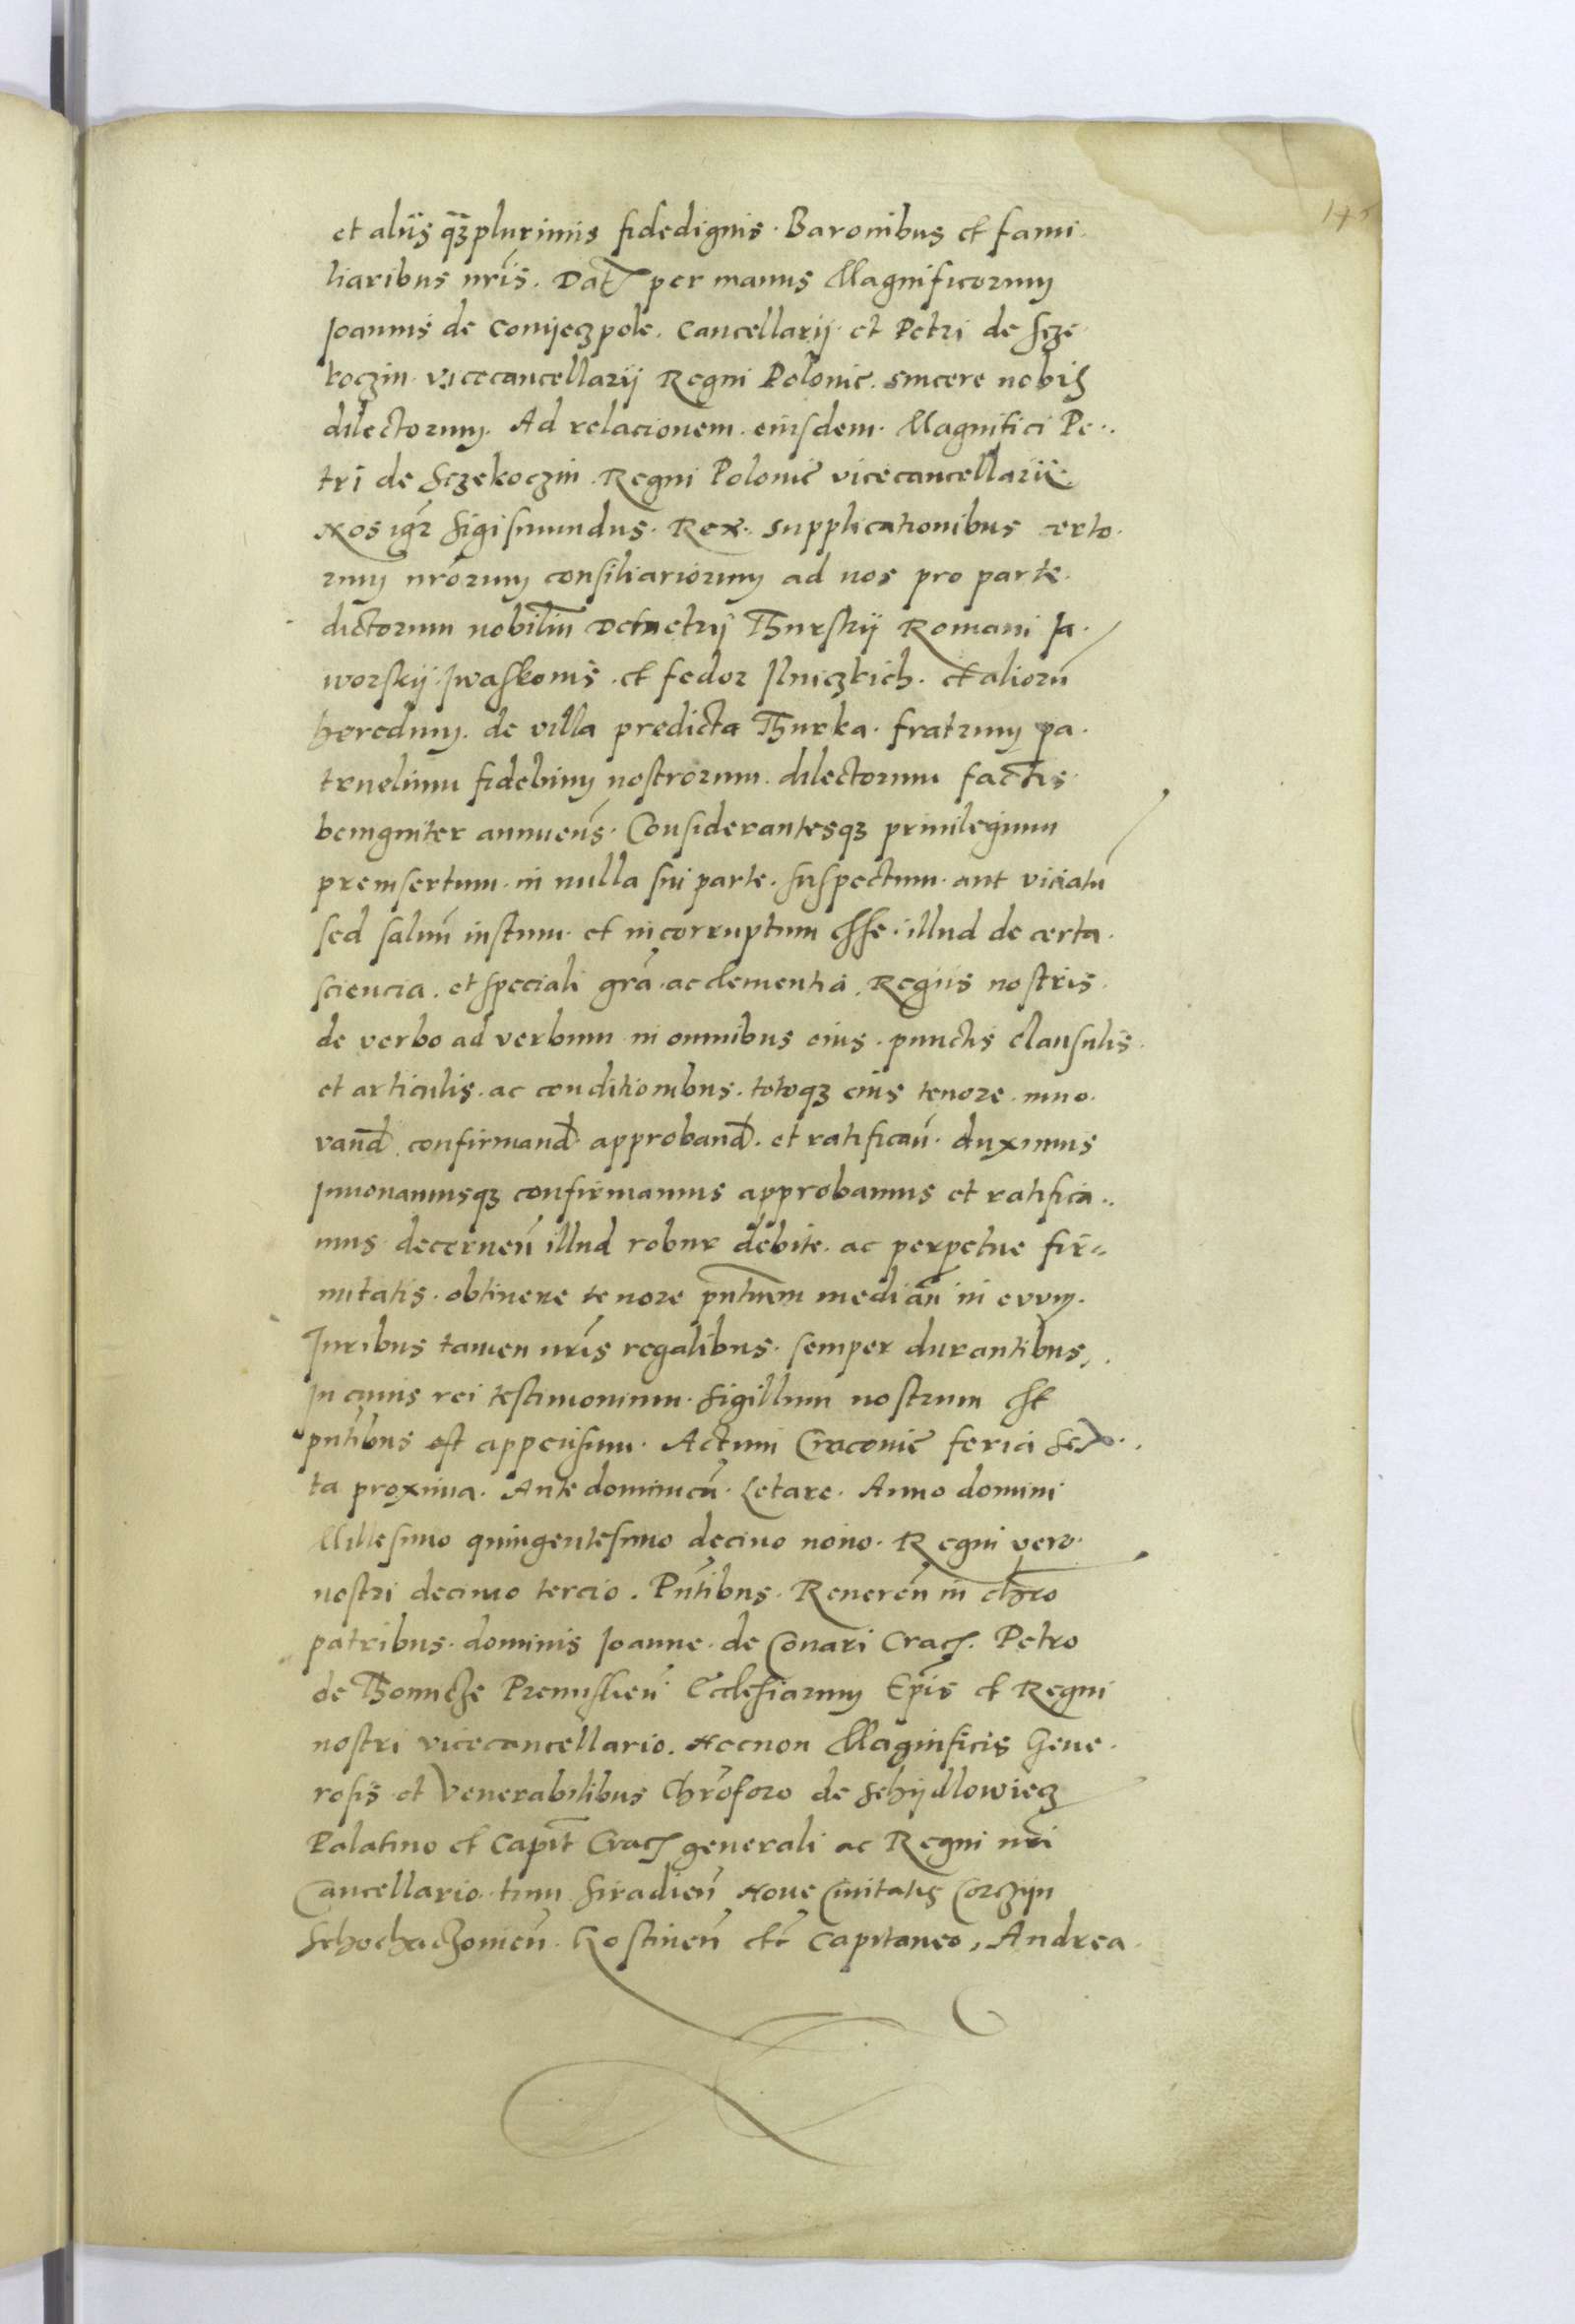 et aliis q̃ꝫplurimis fidedignis · Baronibus et fami
liaribus nr̃is . Dat̃ per manus Magnificorum
Joannis de Conijeczpole . Cancellarij · et Petri de Scze
koczin · vicecancellarij Regni Polonie . sincere nobis
dilectorum . Ad relacionem . eiusdem · Magnifici Pe
tri de Sczekoczin . Regni Polonie vicecancellarij .
Nos igr̃ Sigismundus · Rex · supplicationibus certo
rum nr̃orum consiliariorum ad nos pro parte
dictorum nobiliũ Demetrij Thurskij Romani Ja
worskij · Iwaskonis . et fedor Ilniczkich . et aliorũ
heredum . de villa predicta Thurka . fratrum pa
truelium fidelium nostrorum . dilectorum factis
benigniter annueñ · Considerantesqꝫ priuilegium
preinsertum · in nulla sui parte . suspectum · aut viciatũ
sed saluũ iustum · et incorruptum esse · illud de certa
sciencia . et speciali grã · ac clementia . Regiis nostris
de verbo ad verbum in omnibus eius . punctis clausulis
et articulis . ac conditionibus . totoqꝫ eius tenore . inno
vand̃ confirmand̃ · approband̃ . et ratificañ · duximus
Innouamusqꝫ confirmamus approbamus et ratifica
mus · decerneñ illud robur debite . ac perpetue fir
mitatis . obtinere tenore pñtium mediañ in evum .
Juribus tamen nr̃is regalibus · semper durantibus
In cuius rei testimonium · sigillum nostrum
pñtibus est appensum · Actum Cracouie feria sex
ta proxima . Ante dominicã · Letare · Anno domini
Millesimo quingentesimo decimo nono · Regni vero
nostri decimo tercio . Pñtibus · Reuereñ in chr̃o
patribus · dominis Joanne · de Conari Crac̃ . Petro
de Thomicze Premislieñ Ecclesiarum Ep̃is et Regni
nostri vicecancellario . Necnon Magnificis Gene
rosis · et Venerabilibus Chr̃oforo de Schijdlowiecz
Palatino et Capit̃ Crac̃ generali ac Regni nr̃i
Cancellario · tum Siradieñ Noue Ciuitatis Corczijn
Schochaczouieñ · Gostineñ etc̃ Capitaneo , Andrea